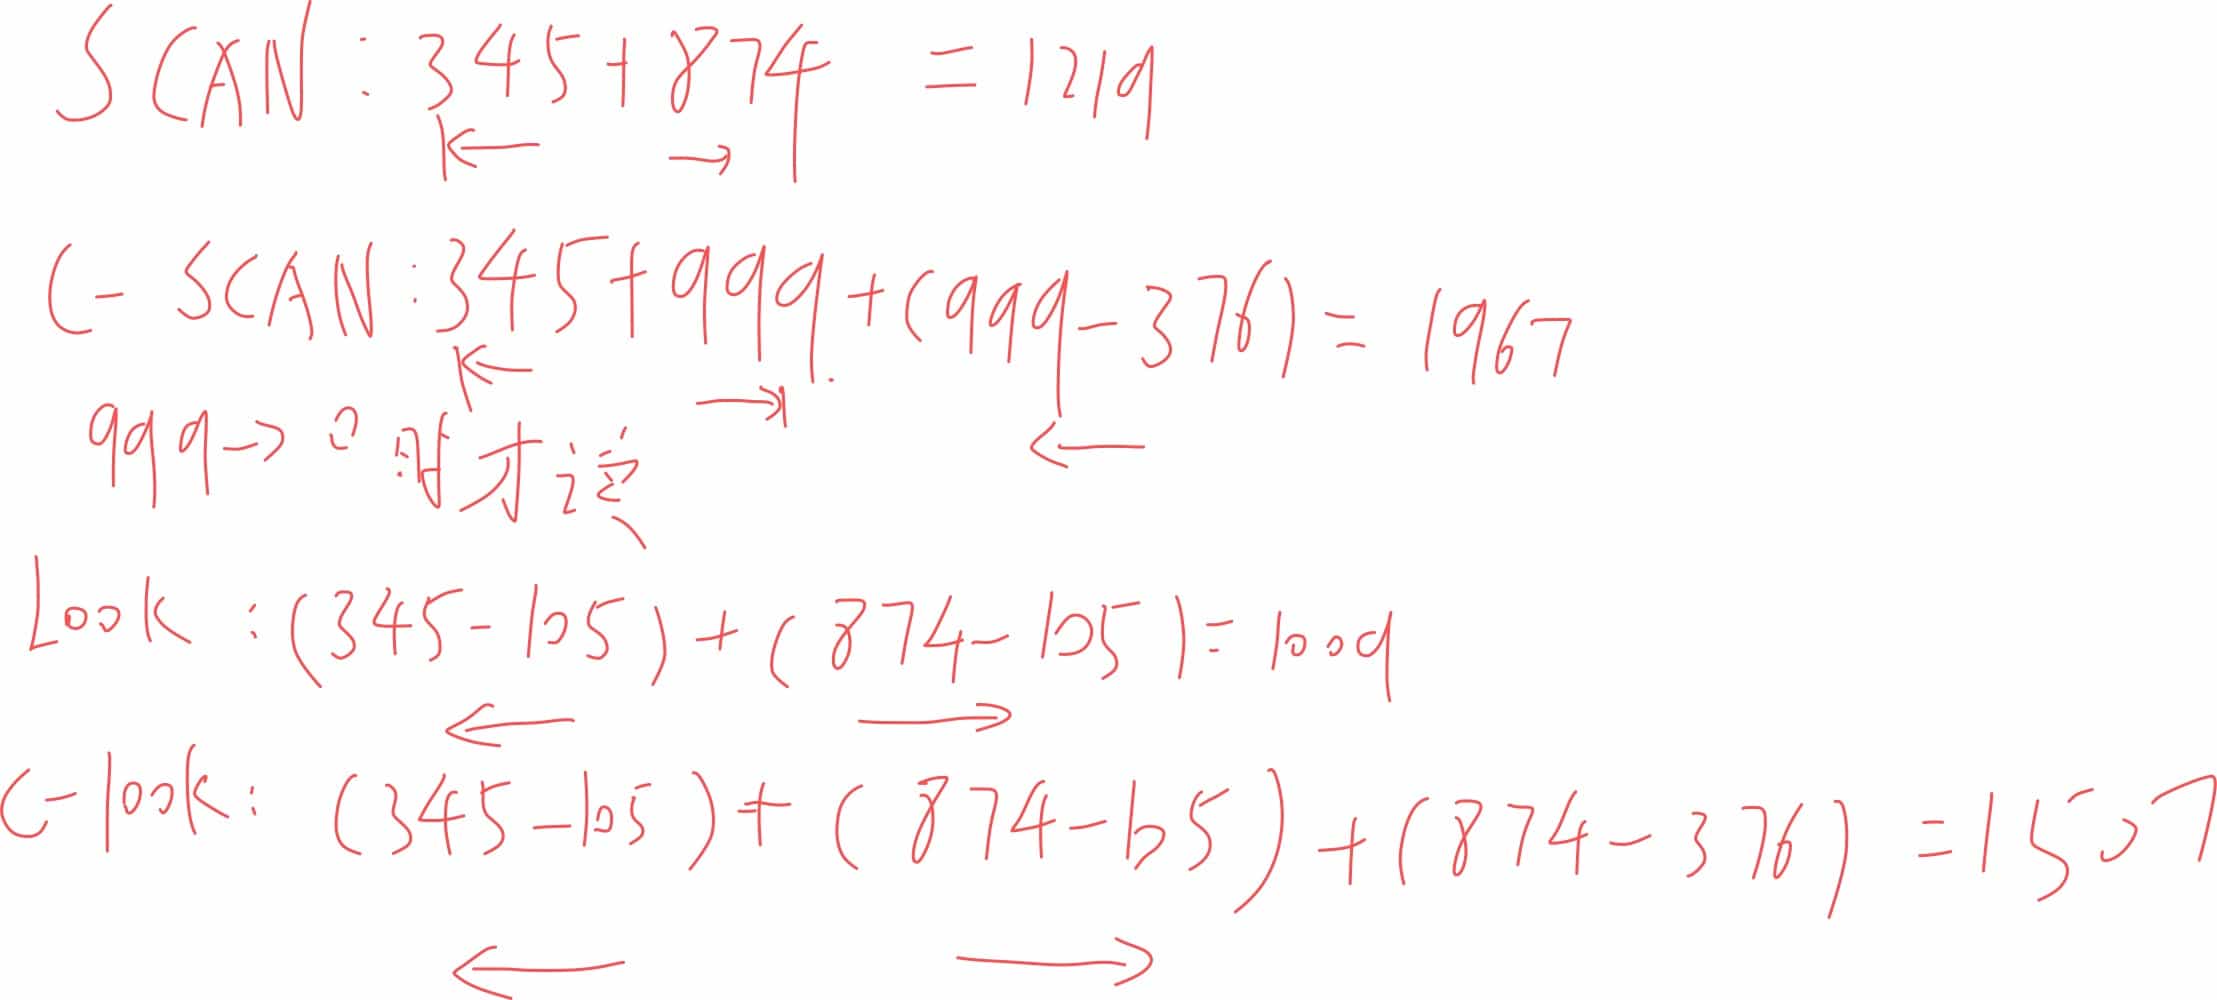 SCAN: 345+874 = 1219
C-SCAN: 345+999+(999-376)=1967
999→0时才读
Look: (345-105)+(874-105)=1009
C-look: (345-105)+(874-105)+(874-376)=1507